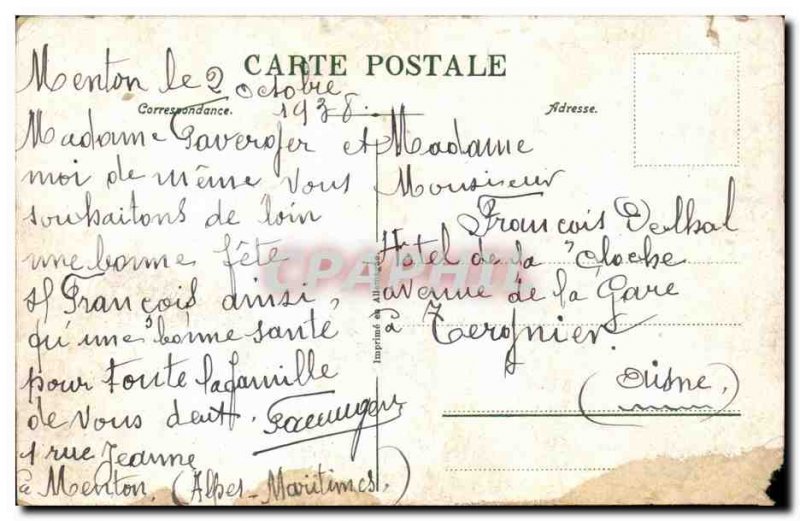 CARTE POSTALE
Correspondance.
Adresse.
Menton le 2 octobre
1938.
Madame et
moi de même vous
souhaitons de loin
une bonne fête
St François ainsi,
qu'une bonne santé
pour toute la famille
de vous deux.
1 rue Jeanne
à Menton, (Alpes-Maritimes)
Madame
Monsieur
François Delhal
Hotel de la "Cloche
avenue de la Gare
à Tergnier.
(Aisne,)
Imprimé en Allemagne
CPAPHIL